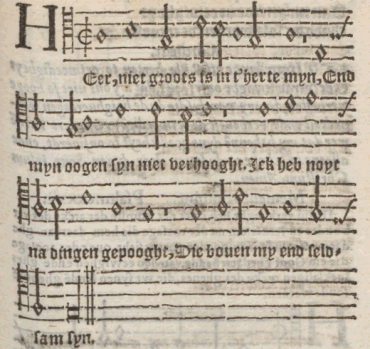 HEer, niet groots is in t'herte myn, End
myn oogen syn niet verhooght. Ick heb noyt
na dingen gepooght, Die boven my end seld-
sam syn.